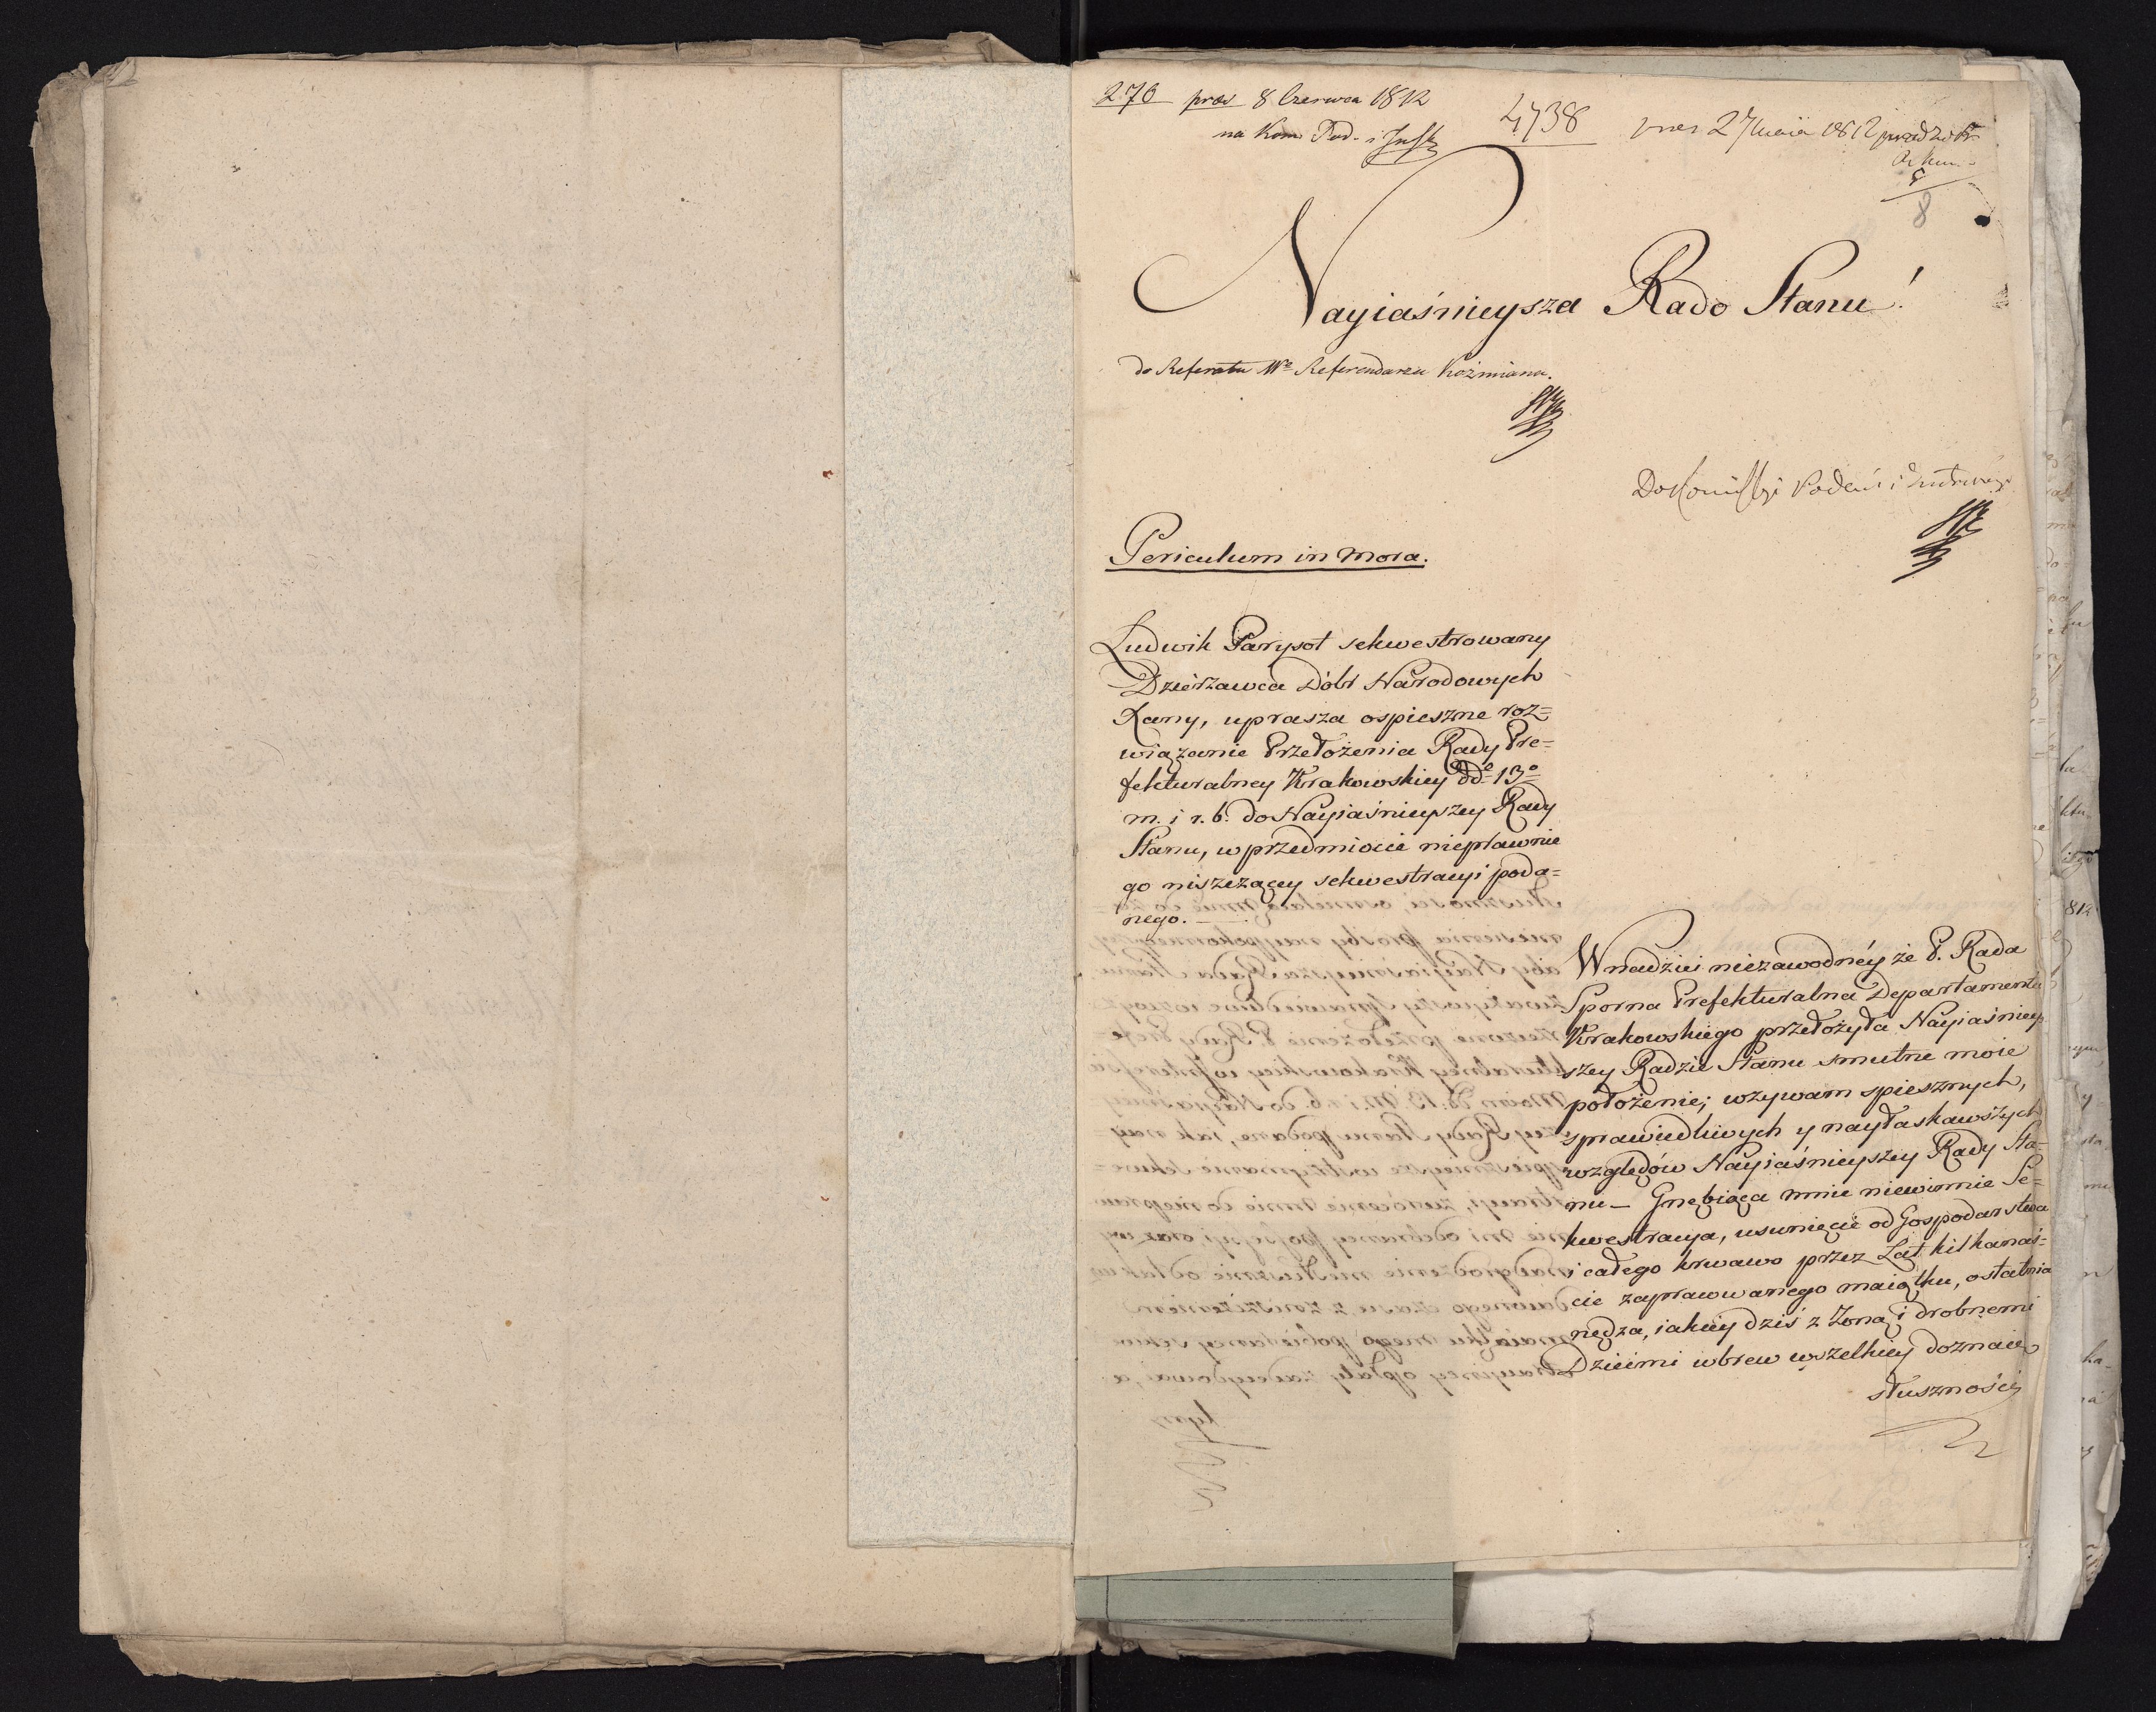 276 praes 8 Czerwca 1812
na Kom Pod. i Instr
4738
praes 27 maia 1812
8
Nayiaśnieysza Rado Stanu!
do Referatu Wo Referendarza Koźmiana.
Do Komissyi Podań i Instrukcyi
Periculum in mora.
Ludwik Parysot sekwestrowany
Dzierżawca Dóbr Narodowych
Kany, uprasza o spieszne roz=
wiązanie Przełożenia Rady Pre=
fekturalney Krakowskiey dd° 13°
m. i r. b. do Nayiaśnieyszey Rady
Stanu, w przedmiocie nieprawnie
go niszczącey sekwestracyi poda=
nego.—
W nadziei niezawodnéy że P. Rada
Sporna Prefekturalna Departamentu
Krakowskiego przełożyła Nayiaśniey=
szey Radzie Stanu smutne moie
położenie; wzywam spiesznych,
sprawiedliwych y nayłaskawszych
względów Nayiaśnieyszey Rady Sta=
nu— Gnębiąca mnie niewinnie Se=
kwestracya, usunięcie od Gospodarstwa
i całego krwawo przez Lat kilkanaś=
cie zapracowanego maiątku, ostatnia
nędza, iakiey dziś z Żoną i drobnemi
Dziećmi wbrew wszelkiey doznaię
słuszności